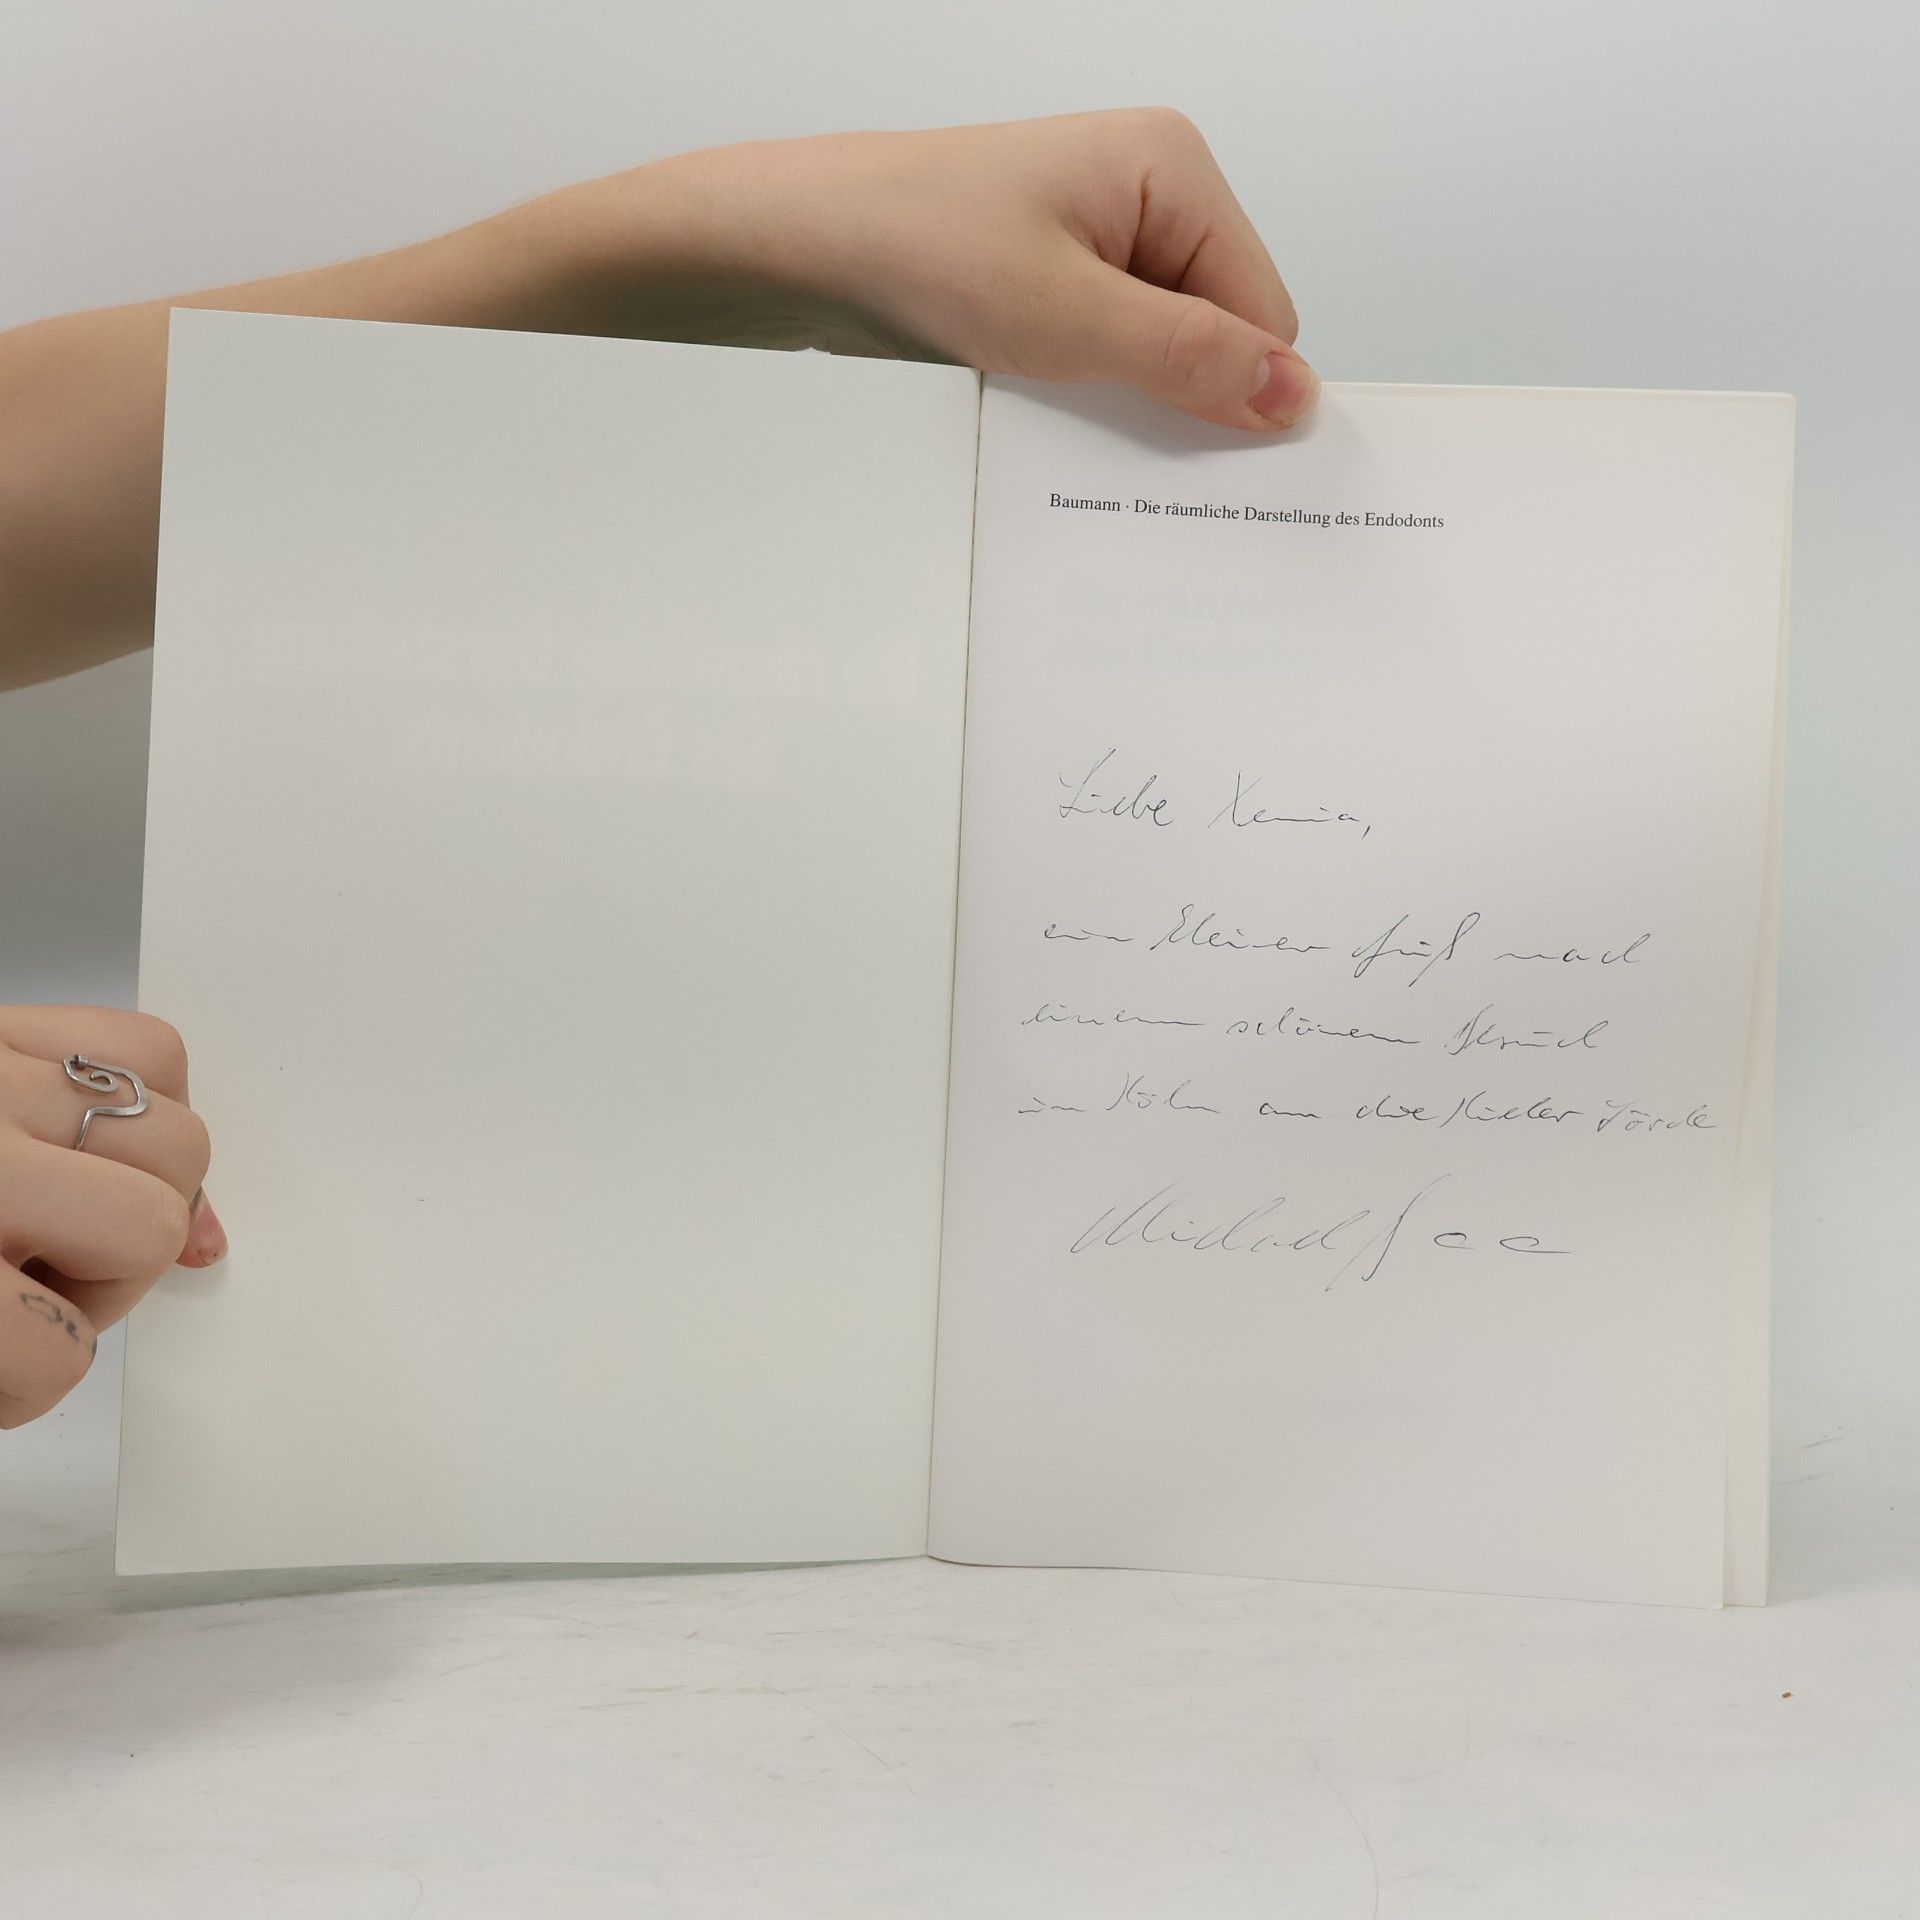 Baumann · Die räumliche Darstellung des Endodonts
Liebe Xenia,
ein kleiner Gruß nach
einem schönem Besuch
in Köln an die Kieler Förde
Michael